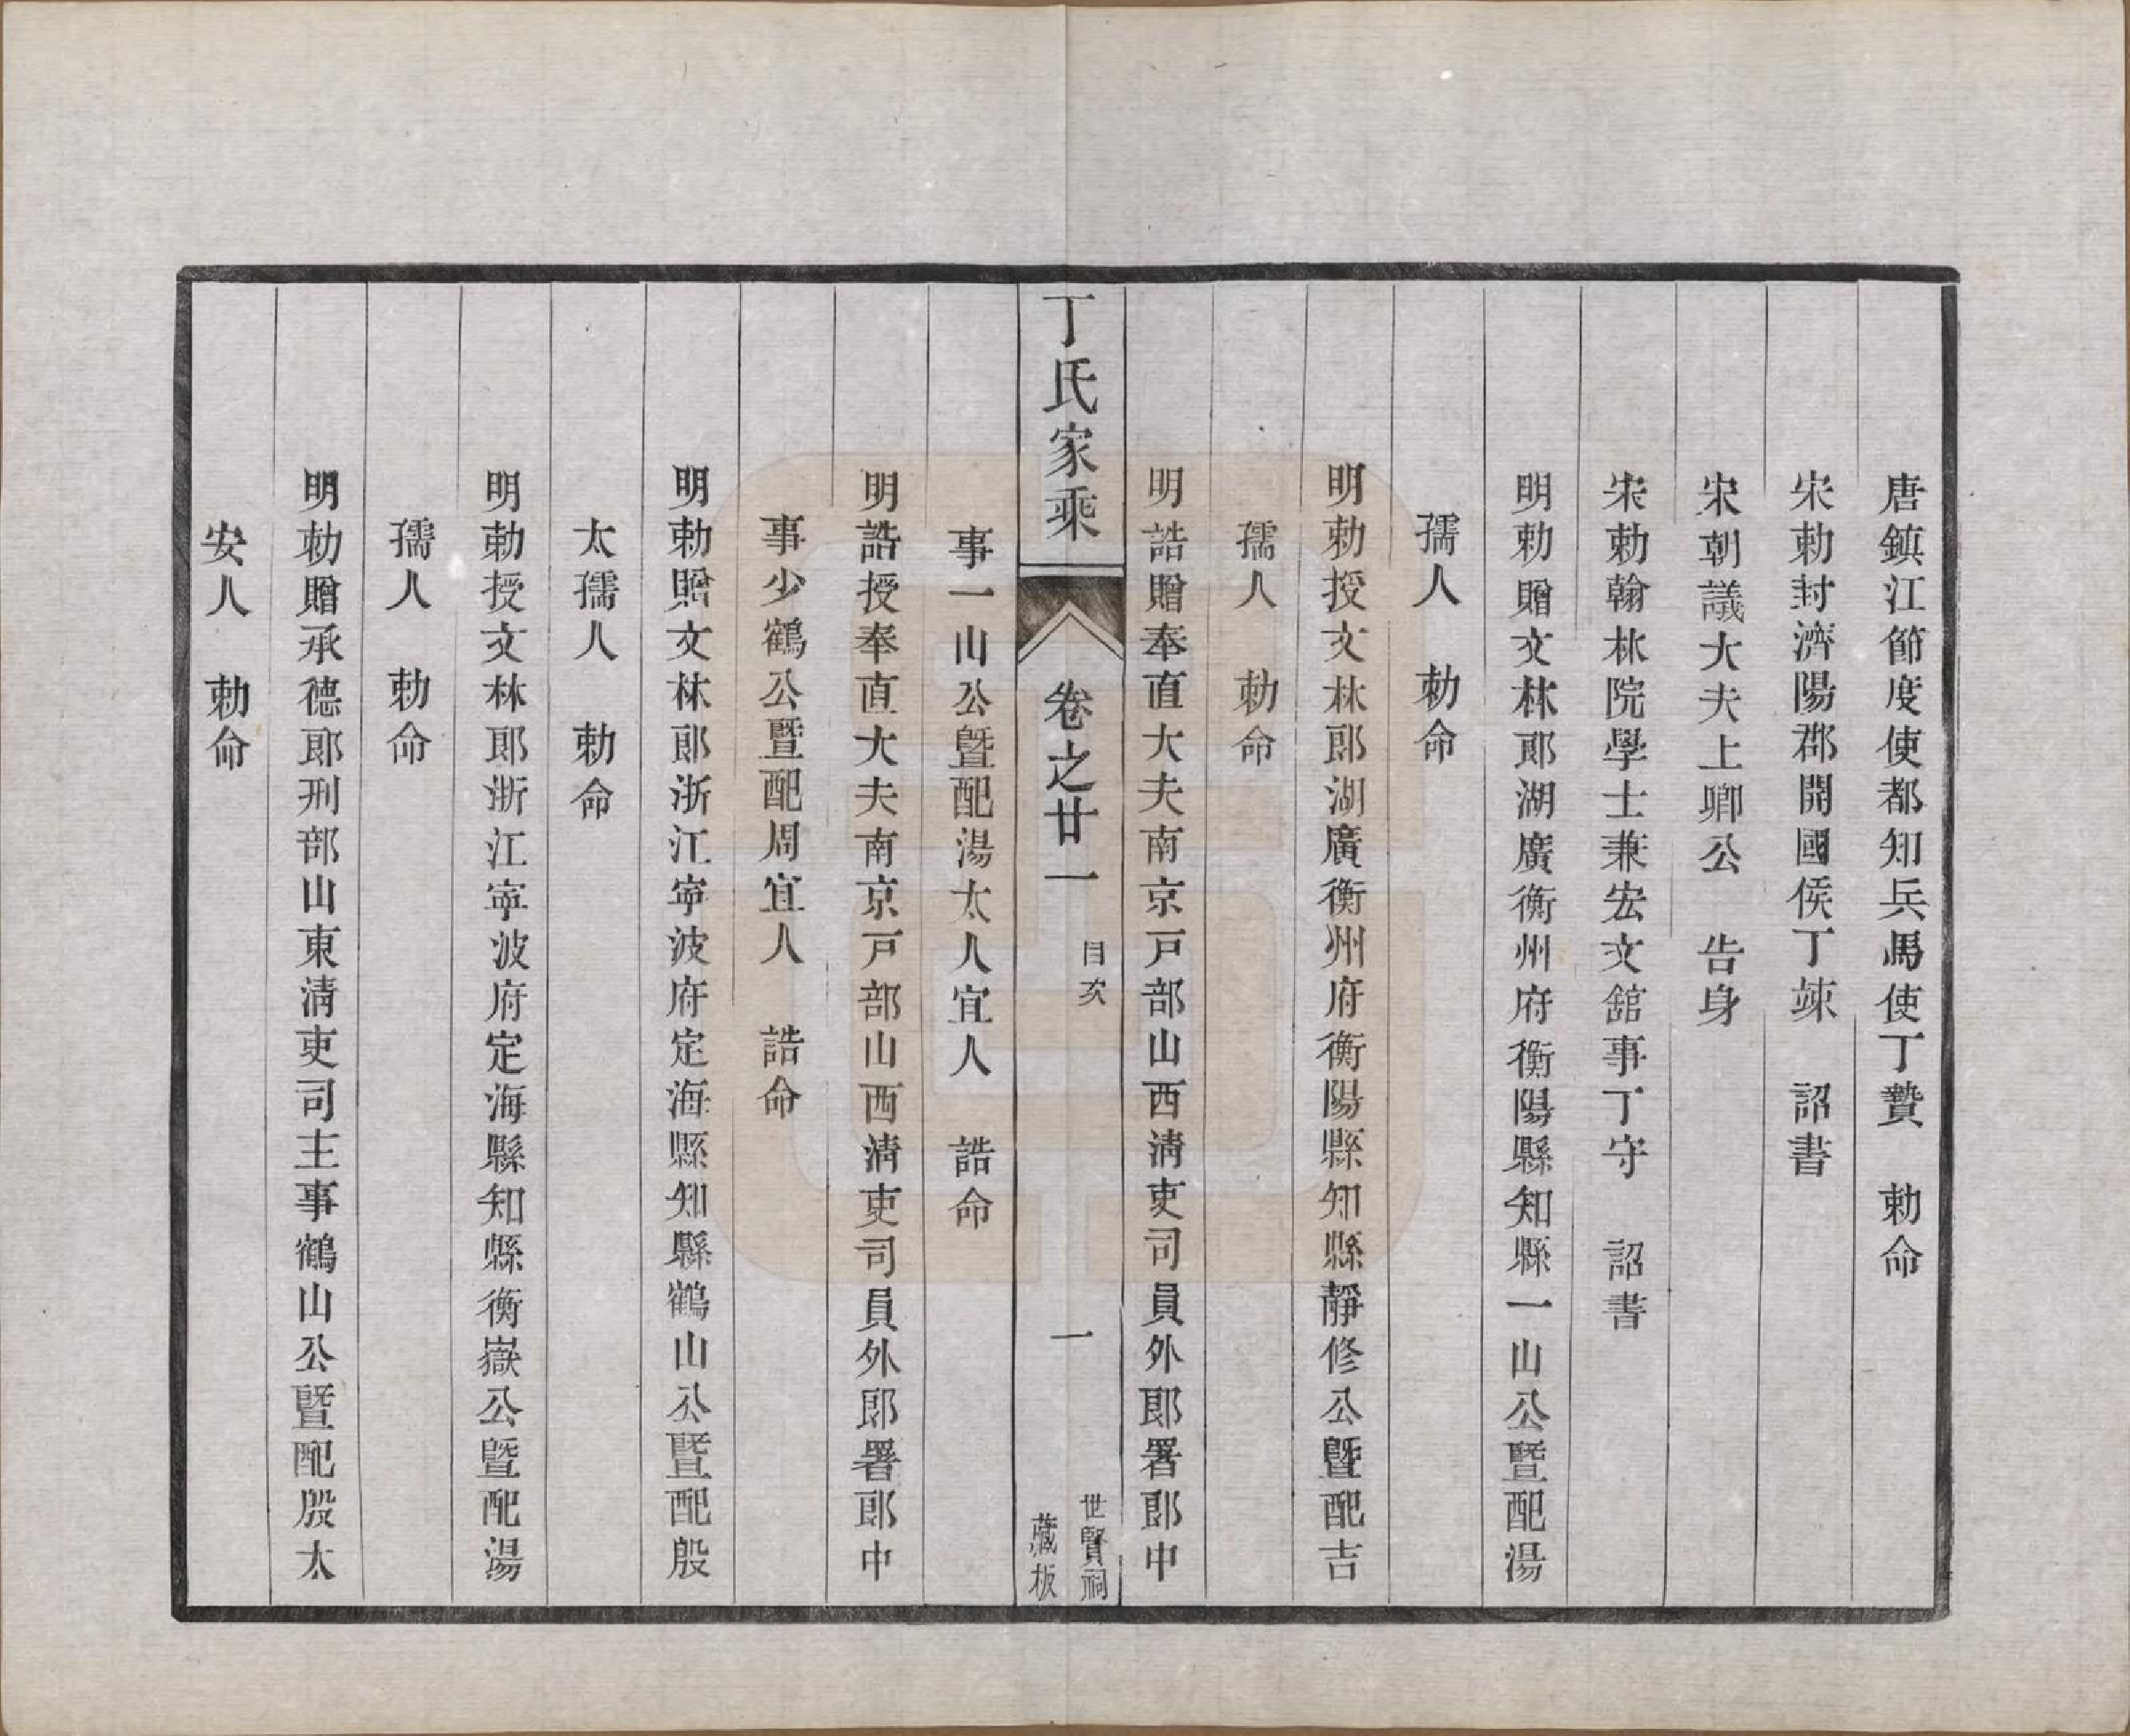 唐鎮江節度使都知兵馬使丁贊　勅命
宋勅封濟陽郡開國侯丁竦　詔書
宋朝議大夫上卿公　告身
宋勅翰林院學士兼宏文舘事丁守　詔書
明勅贈文林郎湖廣衡州府衡陽縣知縣一山公曁配湯
孺人　勅命
明勅授文林郎湖廣衡州府衡陽縣知縣靜修公曁配吉
孺人　勅命
明誥贈奉直大夫南京戸部山西淸吏司員外郎署郎中
丁氏家乘
卷之廿一
目次
一
世賢祠
藏板
事一山公曁配湯太人宜人　誥命
明誥授奉直大夫南京戸部山西淸吏司員外郎署郎中
事少鶴公曁配周宜人　誥命
明勅贈文林郎浙江寧波府定海縣知縣鶴山公曁配殷
太孺人　勅命
明勅授文林郎浙江寧波府定海縣知縣衡嶽公曁配湯
孺人　勅命
明勅贈承德郎刑部山東淸吏司主事鶴山公曁配殷太
安人　勅命